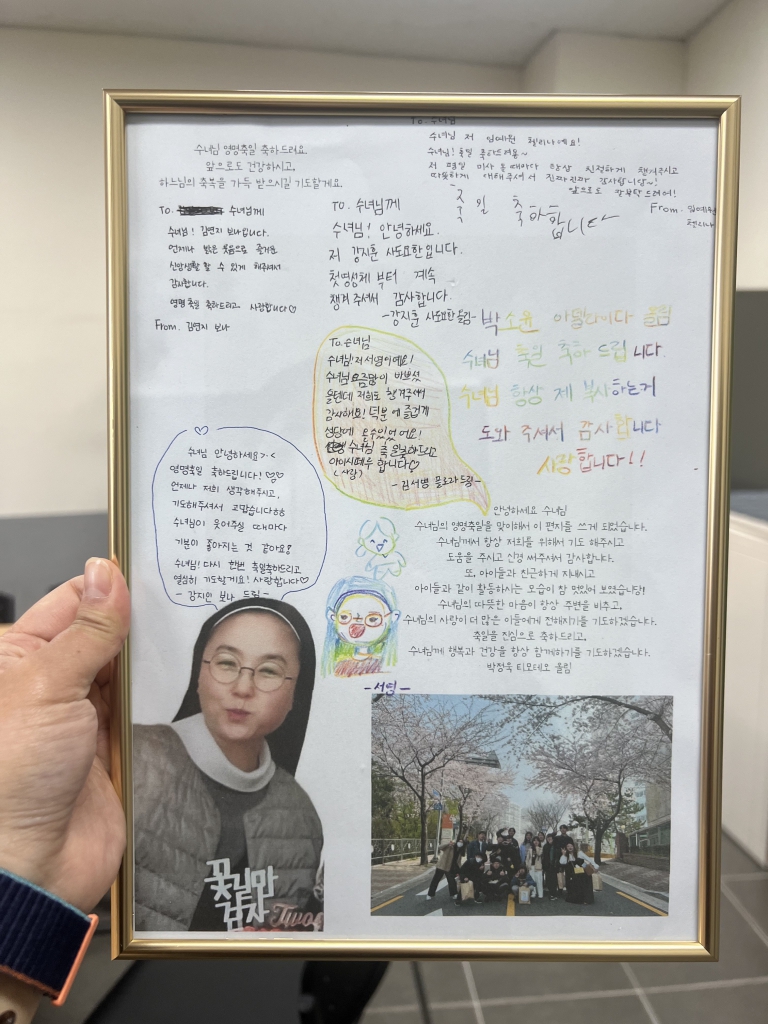 수녀님 영명축일 축하드려요.
앞으로도 건강하시고,
하느님의 축복을 가득 받으시길 기도할게요.
To. 수녀님
수녀님 저 임예원 헬레나예요!
수녀님! 축일 축하드려용~
저 평일 미사 올 때마다 항상 친절하게 챙겨주시고
따뜻하게 대해주셔서 진짜진짜 감사합니당~!
앞으로도 잘부탁드려어!
From. 임예원
헬레나
축일 축하합니다
To. 수녀님께
수녀님! 김연지 보나입니다.
언제나 밝은 웃음으로 즐거운
신앙생활 할 수 있게 해주셔서
감사합니다.
영명축일 축하드리고 사랑합니다♡
From. 김연지 보나
To. 수녀님께
수녀님! 안녕하세요.
저 강지훈 사도요한입니다.
첫영성체부터 계속
챙겨주셔서 감사합니다.
-강지훈 사도요한 드림-
박소윤 아델라이다 올림
수녀님 축일 축하 드립니다.
수녀님 항상 제 복사하는거
도와 주셔서 감사합니다
사랑합니다!!
To. 수녀님
수녀님! 저 서별이예요!
수녀님 요즘많이 바쁘셨
을텐데 저희도 챙겨주셔서
감사해요! 덕분에 즐겁게
성당에 올수있었어요!
수녀님 축일축하드리고
아이시떼루 합니다♡
(사랑)
-김서별 물로라드림-
수녀님 안녕하세요>.<
영명축일 축하드립니다!♡♡
언제나 저희 생각해주시고,
기도해주셔서 고맙습니다ㅎㅎ
수녀님이 웃어주실 때마다
기분이 좋아지는 것 같아요!
수녀님! 다시 한번 축일축하드리고
열심히 기도할게요! 사랑합니다♡
- 강지인 보나 드림 -
안녕하세요 수녀님
수녀님의 영명축일을 맞이해서 이 편지를 쓰게 되었습니다.
수녀님께서 항상 저희를 위해서 기도 해주시고
도움을 주시고 신경 써주셔서 감사합니다.
또, 아이들과 친근하게 지내시고
아이들과 같이 활동하시는 모습이 참 멋있어 보였습니당!
수녀님의 따뜻한 마음이 항상 주변을 비추고,
수녀님의 사랑이 더 많은 이들에게 전해지기를 기도하겠습니다.
축일을 진심으로 축하드리고,
수녀님께 행복과 건강을 항상 함께하기를 기도하겠습니다.
박정욱 티모테오 올림
꽃님만
감자